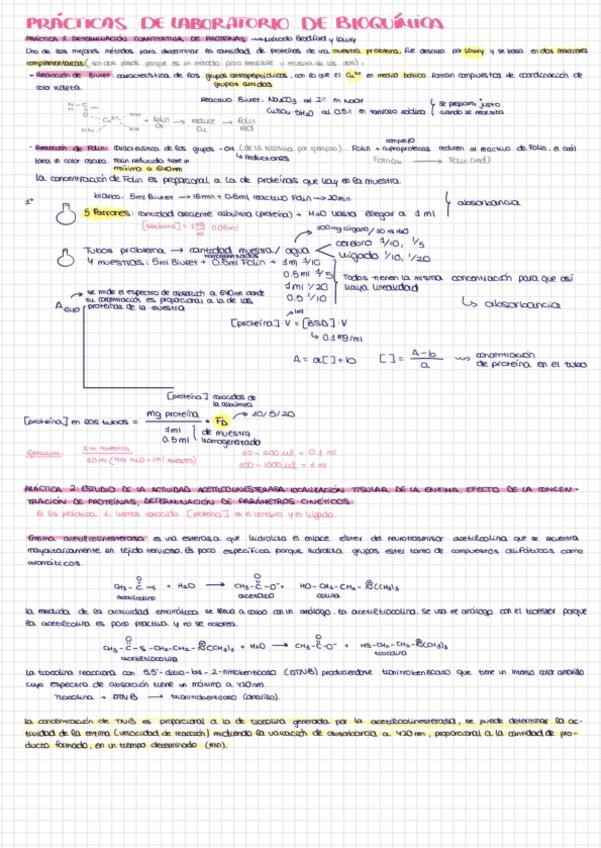 PRÁCTICAS DE LABORATORIO DE BIOQUÍMICA
PRÁCTICA 1: DETERMINACIÓN CUANTITATIVA DE PROTEÍNAS → Método Bradford y Lowry
Uno de los mejores métodos para determinar la cantidad de proteínas de una muestra problema, fue descrito por Lowry y se basa en dos reacciones
complementarias
- Reacción de Biuret: característica de los grupos con lo que el Cu2+ en medio básico forman compuestos de coordinación de
grupos amidos
color violeta.
Reactivo Biuret: Na2CO3 al 2% en NaOH
CuSO4 5H2O al 0.5% en tartrato sódico
se prepara justo
cuando se necesita
- Reacción de Folin: característica de los grupos -OH (de la tirosina por ejemplo). Folin + cuproproteínas reducen al reactivo de Folin, e azul
complejo
reductores
Folin ox → Folin (red)
torna en color oscuro. Folin reducido tiene un
máximo a 640nm
La concentración de Folin es proporcional a la de proteínas que hay en la muestra.
1º
blanco: 5ml Biuret → 15min + 0.5mL reactivo Folin → 20min
5 Patrones: cantidad creciente albúmina (proteína) + H2O hasta llegar a 1 ml
absorbancia
100 mg órgano / 10 ml H2O
Tubos problema → cantidad muestra / agua
cerebro 1/10, 1/5
hígado 1/10, 1/20
homogeneizados
4 muestras: 5ml Biuret + 0.5ml Folin + 1ml 1/10
0.5 ml 1/5
1ml 1/20
0.5 1/10
Todos tienen la misma concentración para que así
haya linealidad
↳ absorbancia
se mide el espectro de absorción a 640nm donde
su concentración es proporcional a la de las
proteínas de la muestra
A640
1ml
[proteína] · V = [BSA] · V
↳ 0.1 mg/ml
A = a[ ]+b
[ ] = A-b / a
concentración
de proteína en el tubo
[proteína] conocidas de
la albúmina
[proteína] en los tubos = mg proteína / 1ml 0.5 ml · FD → 10/5/20
de muestra
homogeneizado
10 - 100 µl = 0.1 ml
100 - 1000 µl = 1 ml
PRÁCTICA 2: ESTUDIO DE LA ACTIVIDAD ACETILCOLINESTERASA: LOCALIZACIÓN TISULAR DE LA ENZIMA, EFECTO DE LA CONCEN-
TRACIÓN DE PROTEÍNAS, DETERMINACIÓN DE PARÁMETROS CINÉTICOS
En la práctica 1, hemos conocido [proteína] en el cerebro y el hígado.
Enzima acetilcolinesterasa: es una esterasa que hidroliza el enlace éster del neurotransmisor acetilcolina que se encuentra
mayoritariamente en tejido nervioso. Es poco específica porque hidroliza grupos éster tanto de compuestos alifáticos como
aromáticos.
acetilcolina
acetato
colina
La medida de la actividad enzimática se lleva a cabo con un análogo, la acetiltiocolina. Se usa ese análogo con el tioéster porque
la acetilcolina es poco reactiva y no se colorea.
acetiltiocolina
tiocolina
La tiocolina reacciona con 5,5'-ditio-bis-2-nitrobenzoato (DTNB) produciéndose tionitrobenzoato que tiene un intenso color amarillo
cuyo espectro de absorción tiene un máximo a 420nm
Tiocolina + DTNB → tionitrobenzoato (amarillo).
La concentración de TNB es proporcional a la de tiocolina generada por la acetilcolinesterasa, se puede determinar la ac-
tividad de la enzima (velocidad de reacción) midiendo la variación de absorbancia a 420nm, proporcional a la cantidad de pro-
ducto formado, en un tiempo determinado (min).